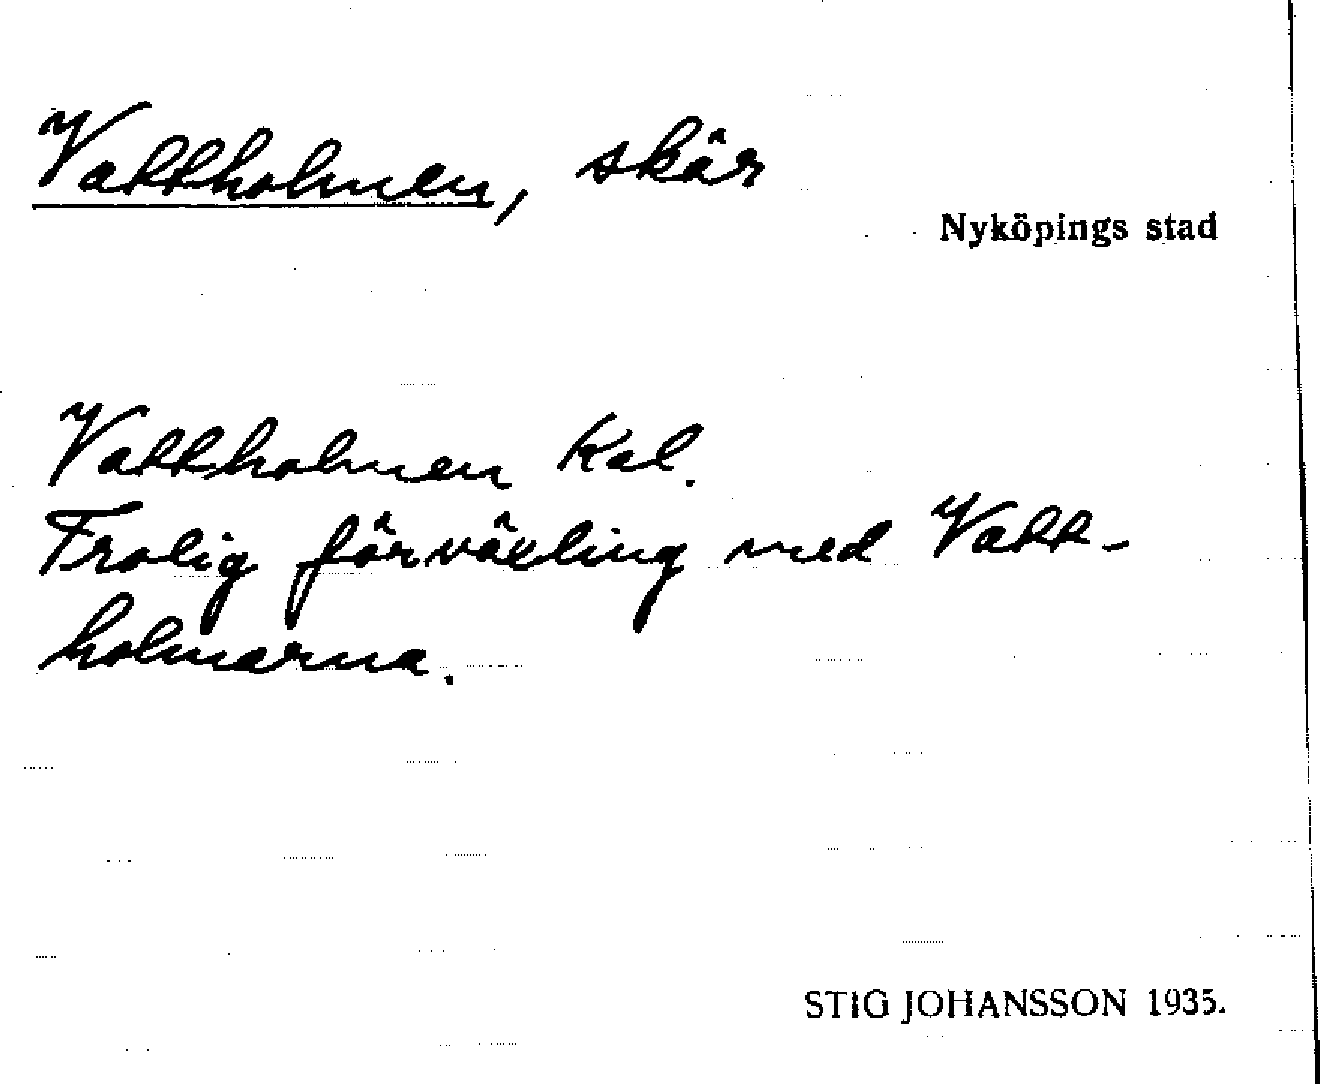 Vattholmen, skär
Nyköpings stad
Vattholmen Kal.
Trolig förväxling med Vatt-
holmarna.
STIG JOHANSSON 1935.